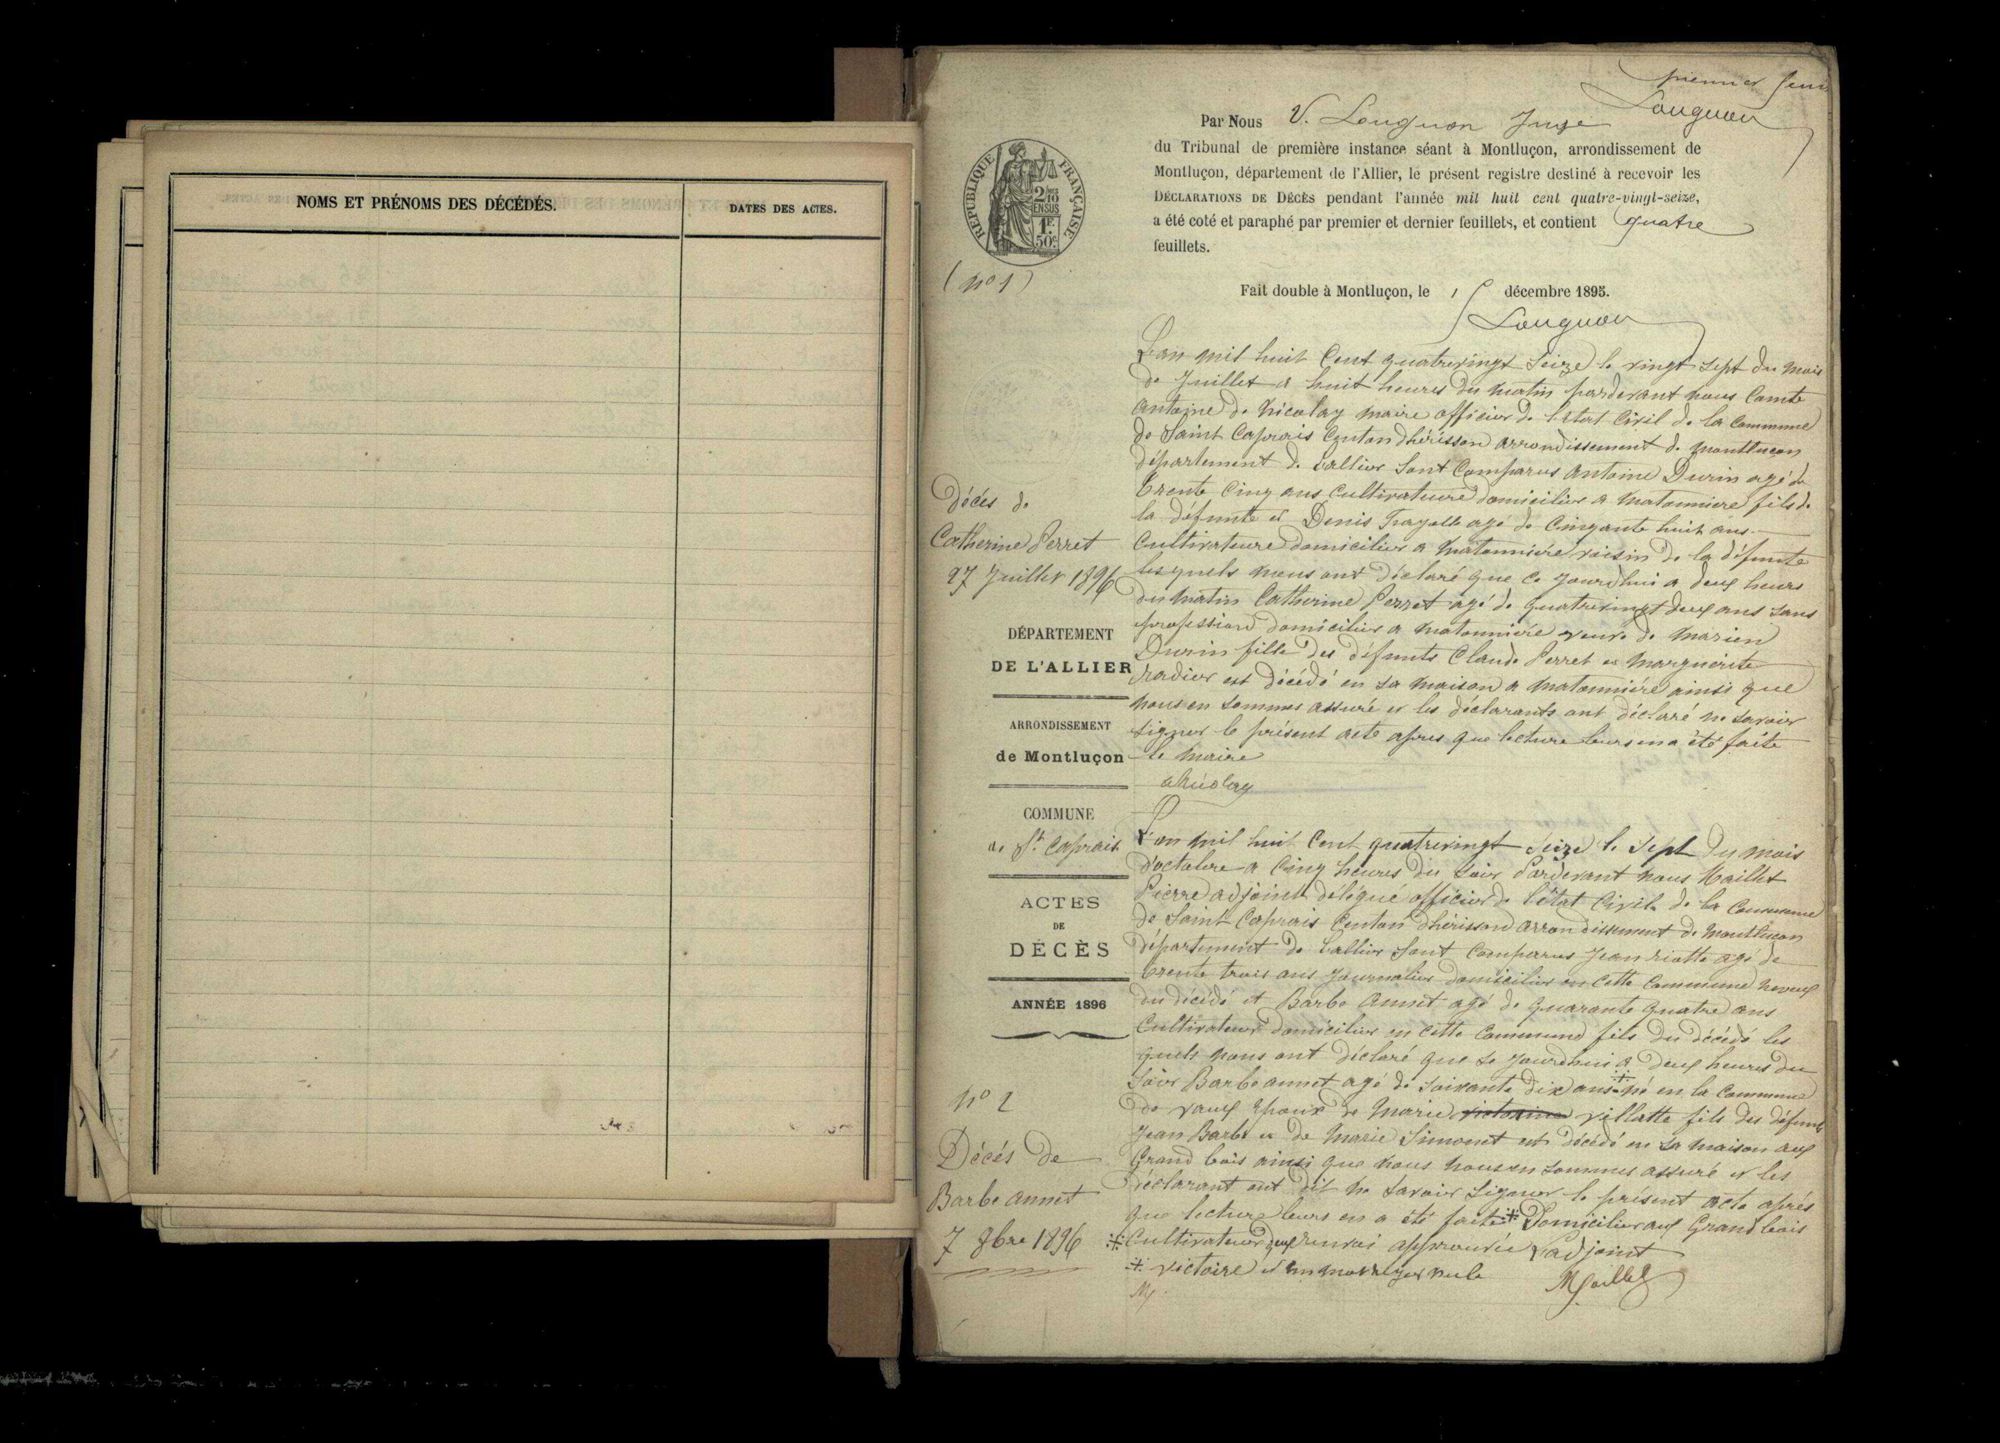 NOMS ET PRÉNOMS DES DÉCÉDÉS.
DATES DES ACTES.
premier
Longuon
Par Nous V. Longuon Juge
du Tribunal de première instance séant à Montluçon, arrondissement de
Montluçon, département de l'Allier, le présent registre destiné à recevoir les
DÉCLARATIONS DE DÉCÈS pendant l'année mil huit cent quatre-vingt-seize,
a été coté et paraphé par premier et dernier feuillets, et contient quatre
feuillets.
Fait double à Montluçon, le 15 décembre 1895.
Longuon
RÉPUBLIQUE FRANÇAISE
1F.
50c.
(no 1)
Décés de
Catherine Perret
27 Juillet 1896
DÉPARTEMENT
DE L'ALLIER
ARRONDISSEMENT
de Montluçon
COMMUNE
de St. Caprais
ACTES
DE
DÉCÈS
ANNÉE 1896
L'an mil huit Cent quatrevingt Seize le vingt sept du mois
de Juillet a huit heures du matin pardevant nous Comte
Antoine de Nicolay maire officier de letat Civil de la Commune
de Saint Caprais Canton dhérisson arrondissement de montluçon
département de Lallier Sont Comparus Antoine Durin agé de
trente Cinq ans Cultivateure domicilier a matonniere fils de
la défunte et Denis Trayolle agé de Cinquante huit ans
Cultivateure domicilier a matonniére voisin de la défunte
lesquels nous ont déclaré que Ce Jourdhui a deux heures
du matin Catherine Perret agé de quatrevingt deux ans sans
profession domicilier a matonniére veuve de Marien
Durin fille des défunts Claude Perret et Marguérite
est décédé en sa maison a matonniére ainsi que
nous en sommes assuré et les déclarants ont déclaré ne savoir
signer le présent acte apres que lecture leurs en a été faite
le Maire
aNicolay
no 2
Décés de
Barbe annet
7 8bre 1896
L'an mil huit Cent quatrevingt Seize le Sept du mois
d'octobre a Cinq heures du soir Pardevant nous Maillet
Pierre adjoint délégué officier de l'état Civil de la Commune
de Saint Caprais Canton dhérisson arrondissement de Montluçon
département de Lallier sont Comparrus Jean riotte agé de
trente trois ans Journalier domicilier en Cette Commune neveux
du décédé et Barbe annet agé de quarante quatre ans
Cultivateur domicilier en cette Commune fils du décédé les
quels nous ont déclaré que Ce Jourdhui a deux heures du
soir Barbe annet agé de soixante dix ans né en la Commune
de vaux Epoux de Marie villatte fils des défunts
Jean Barbe et de Marie Simonet est décédé en sa maison aux
Grand bois ainsi que nous nous en sommes assuré et les
déclarant ont dit ne savoir signer le présent acte aprés
que lecture leurs en a été faite Domicilier aux Grand bois
Cultivateur deux renvoi approuvée L'adjoint
victoire et un mot rayer nule
Maillet
M